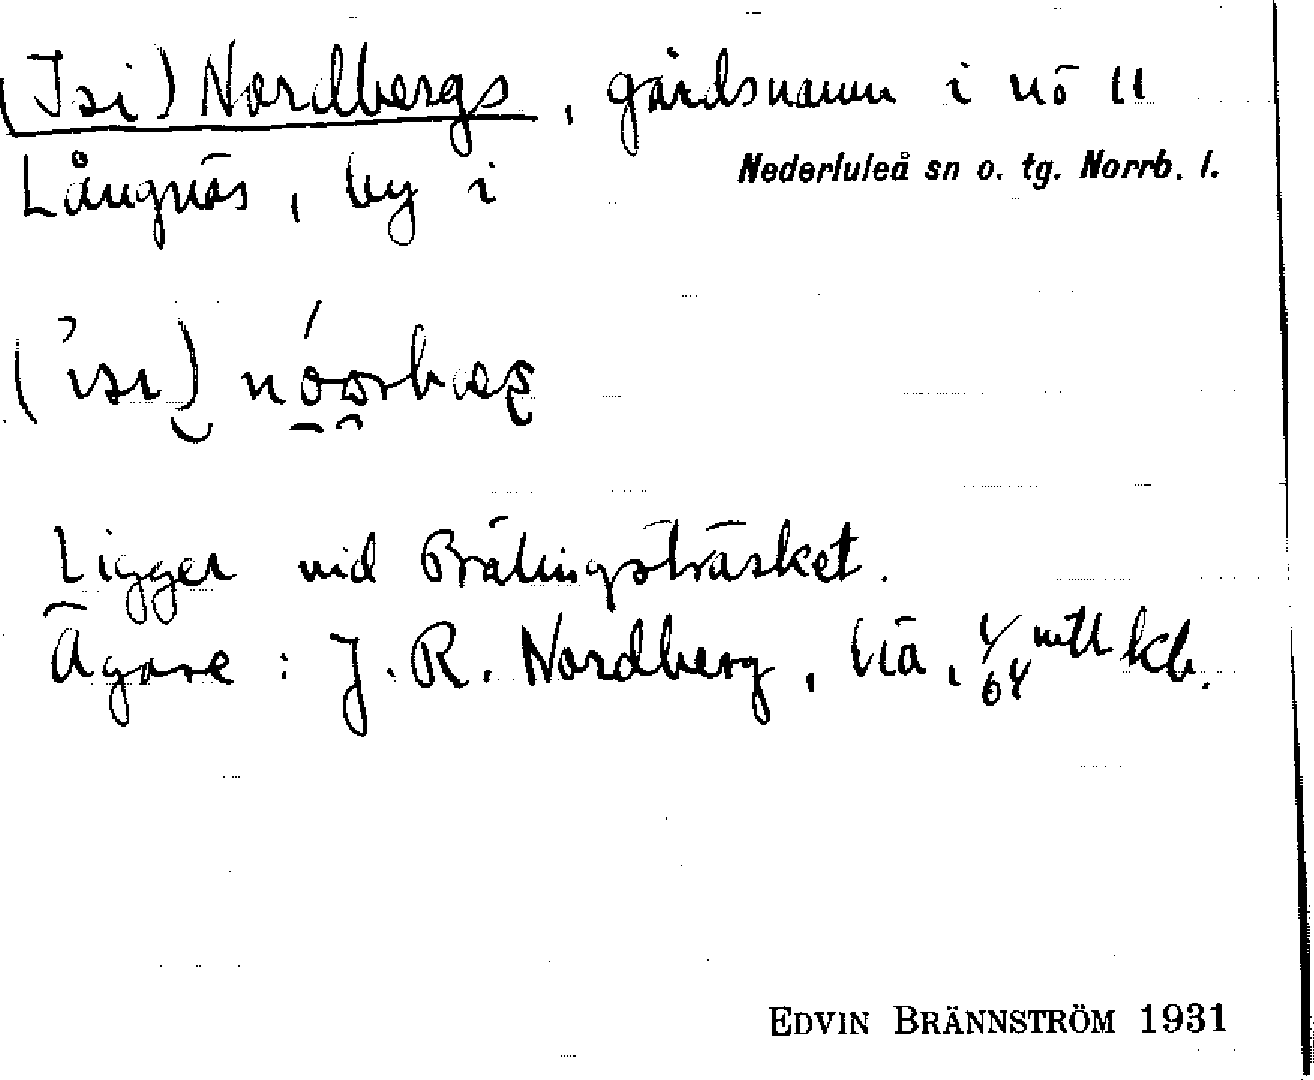 (Isi) Nordbergs, gårdsnamn i nö 11
Långnäs, by i Nederluleå sn o. tg. Norrb. l.
Ligger vid Brätingsträsket.
Ägare: J. R. Nordberg, 1/64 mtl kb.
EDVIN BRÄNNSTRÖM 1931